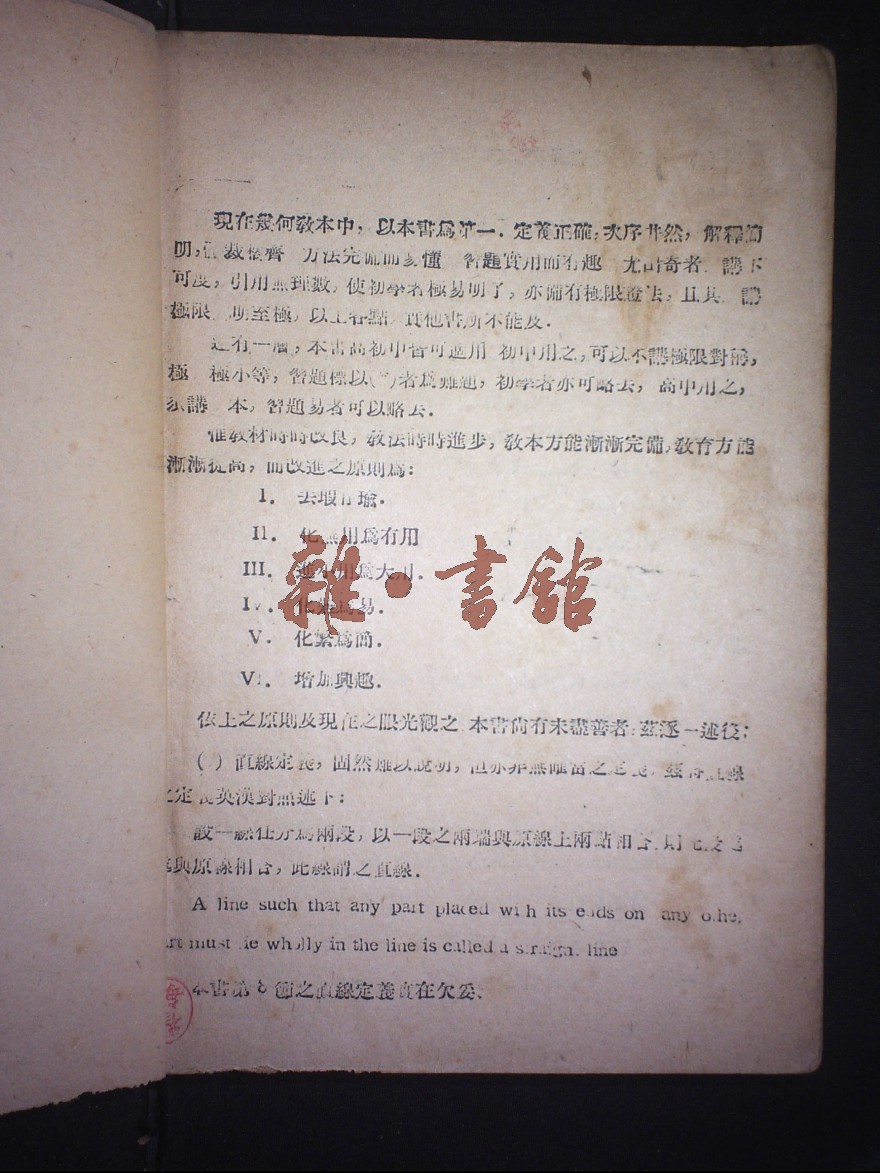 現在幾何教本中，以本書爲第一．定義正確，次序井然，解釋簡
明，體裁整齊 方法完備而易懂 習題實用而有趣 尤出奇者 講不
可度，引用無理數，使初學者極易明了，亦備有極限證法，且其 講
極限 明至極，以上各點 實他書所不能及．
還有一層，本書高初中皆可適用 初中用之，可以不講極限對稱，
極 極小等，習題標以( )者爲難題，初學者亦可略去，高中用之，
講 本，習題易者可以略去．
惟教材時時改良，教法時時進步，教本方能漸漸完備，教育方能
漸漸提高，而改進之原則爲：
I． 去瑕存瑜．
II． 化無用爲有用
III． 進小用爲大用．
IV． 化難爲易．
V． 化繁爲簡．
VI． 增加興趣．
雜·書館
依上之原則及現在之眼光觀之 本書尚有未盡善者，茲逐一述後：
( ) 直線定義，固然難以說明，但亦非無確當之定義，茲將直線
之定義英漢對照述下：
設一線任分爲兩段，以一段之兩端與原線上兩點相合
與原線相合，此線謂之直線．
A line such that any part placed with its ends on any other
part must lie wholly in the line is called a straight line
本書第 節之直線定義實在欠妥、